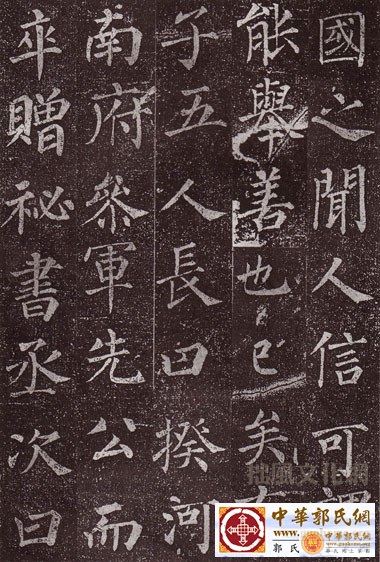 國之聞人信可謂
能舉善也已矣有
子五人長曰揆河
南府叅軍先公而
卒贈祕書丞次曰
中華郭氏網
www.
郭氏